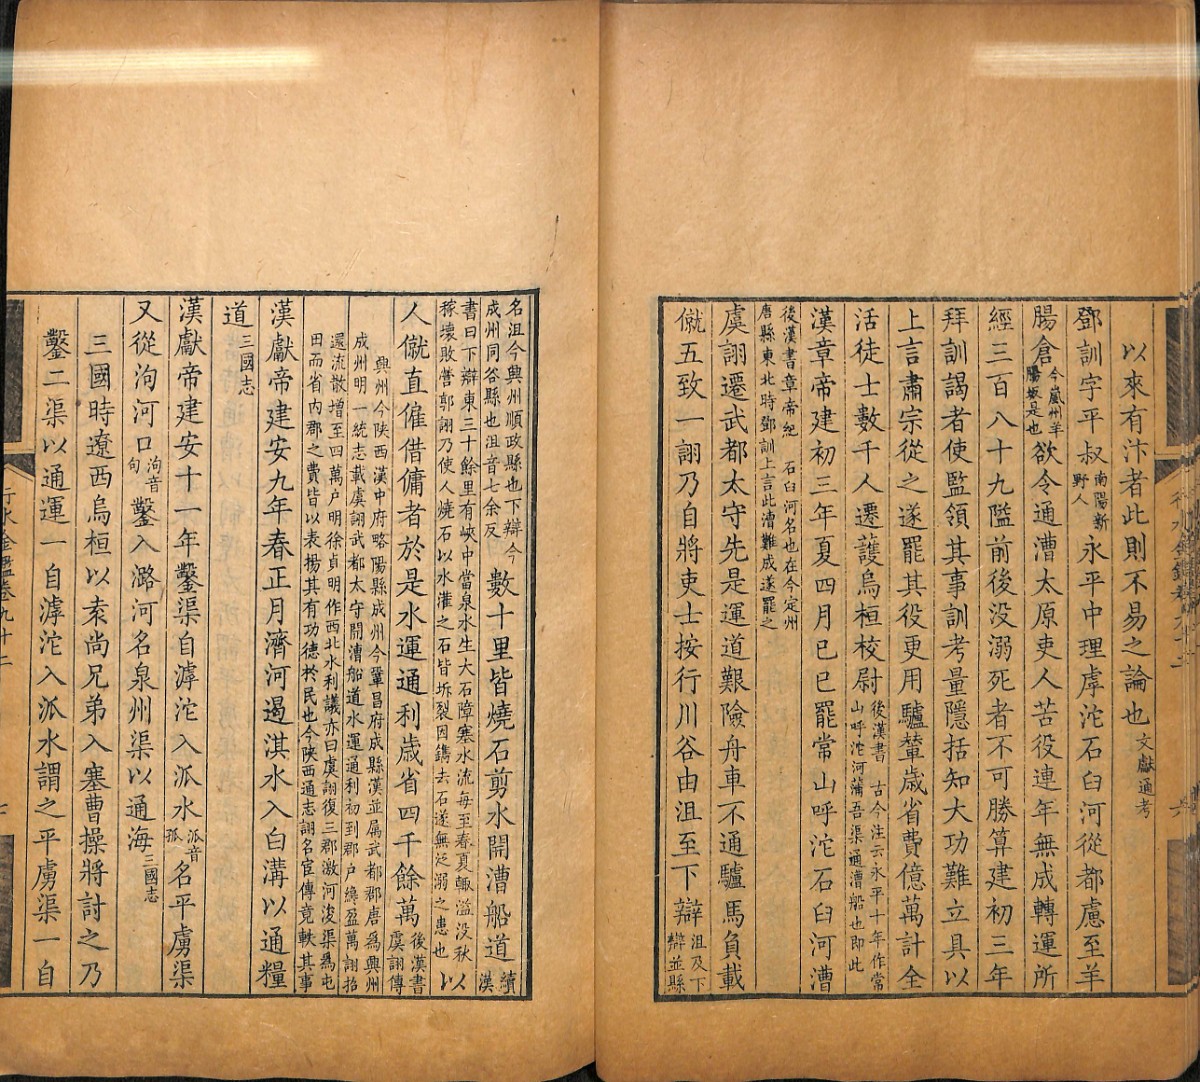 以來有汴者此則不易之論也文獻通考
鄧訓字平叔南陽新野人永平中理虖沱石臼河從都慮至羊
腸倉今嵐州羊腸坂是也欲令通漕太原吏人苦役連年無成轉運所
經三百八十九隘前後没溺死者不可勝算建初三年
拜訓謁者使監領其事訓考量隱括知大功難立具以
上言肅宗從之遂罷其役更用驢輦歲省費億萬計全
活徒士數千人遷護烏桓校尉後漢書 古今注云永平十年作常山呼沱河蒲吾渠通漕船也即此
漢章帝建初三年夏四月己巳罷常山呼沱石臼河漕
後漢書章帝紀 石臼河名也在今定州唐縣東北時鄧訓上言此漕難成遂罷之
虞詡遷武都太守先是運道艱險舟車不通驢馬負載
僦五致一詡乃自將吏士按行川谷由沮至下辯沮及下辯並縣
名沮今興州順政縣也下辯今成州同谷縣也沮音七余反數十里皆燒石剪水開漕船道續漢
書曰下辯東三十餘里有峽中當泉水生大石障塞水流每至春夏輒溢没秋稼壞敗營郭詡乃使人燒石以水灌之石皆坼裂因鐫去石遂無泛溺之患也以
人僦直傭借傭者於是水運通利歲省四千餘萬後漢書虞詡傳
興州今陕西漢中府略陽縣成州今鞏昌府成縣漢並屬武都郡唐爲興州成州明一統志載虞詡武都太守開漕船道水運通利初到郡户纔盈萬詡招
還流散增至四萬户明徐貞明作西北水利議亦曰虞詡復三郡激河浚渠爲屯田而省内郡之費皆以表揚其有功德於民也今陕西通志詡名宦傳竟軼其事
漢獻帝建安九年春正月濟河遏淇水入白溝以通糧
道三國志
漢獻帝建安十一年鑿渠自滹沱入泒水泒音孤名平虜渠
又從泃河口泃音句鑿入潞河名泉州渠以通海三國志
三國時遼西烏桓以袁尚兄弟入塞曹操將討之乃
鑿二渠以通運一自滹沱入泒水謂之平虜渠一自
行水金鑑卷九十二